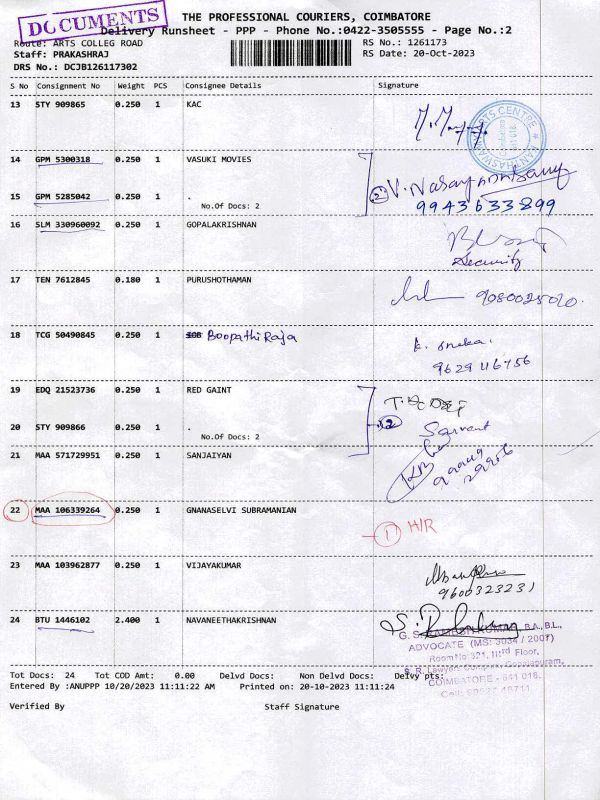 DOCUMENTS
THE PROFESSIONAL COURIERS, COIMBATORE
Delivery Runsheet - PPP - Phone No.:0422-3505555 - Page No.:2
Route: ARTS COLLEG ROAD
RS No.: 1261173
Staff: PRAKASHRAJ
RS Date: 20-Oct-2023
DRS No.: DCJB126117302
S No Consignment No Weight PCS Consignee Details Signature
13 STY 909865 0.250 1 KAC
14 GPM 5300318 0.250 1 VASUKI MOVIES
15 GPM 5285042 0.250 1 .
No.Of Docs: 2
2
9943633899
16 SLM 330960092 0.250 1 GOPALAKRISHNAN
Security
17 TEN 7612845 0.180 1 PURUSHOTHAMAN
9080025020.
18 TCG 50490845 0.250 1 Boopathi Raja
K. Sneka.
9629116756
19 EDQ 21523736 0.250 1 RED GAINT
20 STY 909866 0.250 1 .
No.Of Docs: 2
2
Servant
21 MAA 571729951 0.250 1 SANJAIYAN
22 MAA 106339264 0.250 1 GNANASELVI SUBRAMANIAN
1 H/R
23 MAA 103962877 0.250 1 VIJAYAKUMAR
9600323231
24 BTU 1446102 2.400 1 NAVANEETHAKRISHNAN
B.A., B.L.,
ADVOCATE (MS: 3034 / 2007)
Room No 321, IIIrd Floor,
COIMBATORE - 641 018.
Tot Docs: 24 Tot COD Amt: 0.00 Delvd Docs: Non Delvd Docs: Delvy pts:
Entered By :ANUPPP 10/20/2023 11:11:22 AM Printed on: 20-10-2023 11:11:24
Verified By Staff Signature